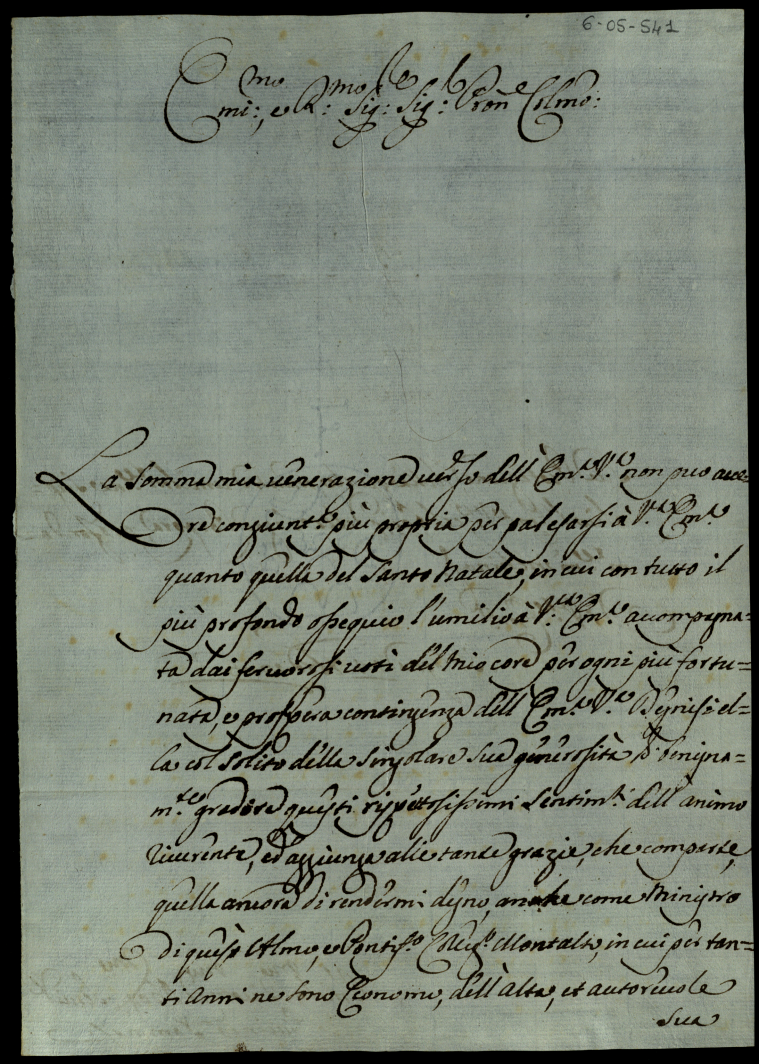 6-05-541
Emi:mo, e R:mo Sig:re Sig:r Pron e Colmo:
La somma mia venerazione verso dell'Em.a V.a non può acce=
dre congiunt.a più propria per palesarsi à V.a Em.a
quanto quella del Santo Natale, in cui con tutto il
più profondo ossequio l'umilio à V.a Em.a accompagna=
ta dai fervorosi voti del mio core per ogni più fortu=
nata, e prospera contingenza dell'Em.a V.a Degnisi el=
la col solito della singolare sua generosità di benigna=
m.te gradire questi rispettosissimi sentim.ti dell'animo
riverente, ed aggiunga alle tante grazie, che comparte,
quella ancora di rendermi degno, anche come Ministro
di questo Almo, e Pontif.o Montalto, in cui per tan=
ti anni ne sono Economo, dell'alta, et autorevole
sua